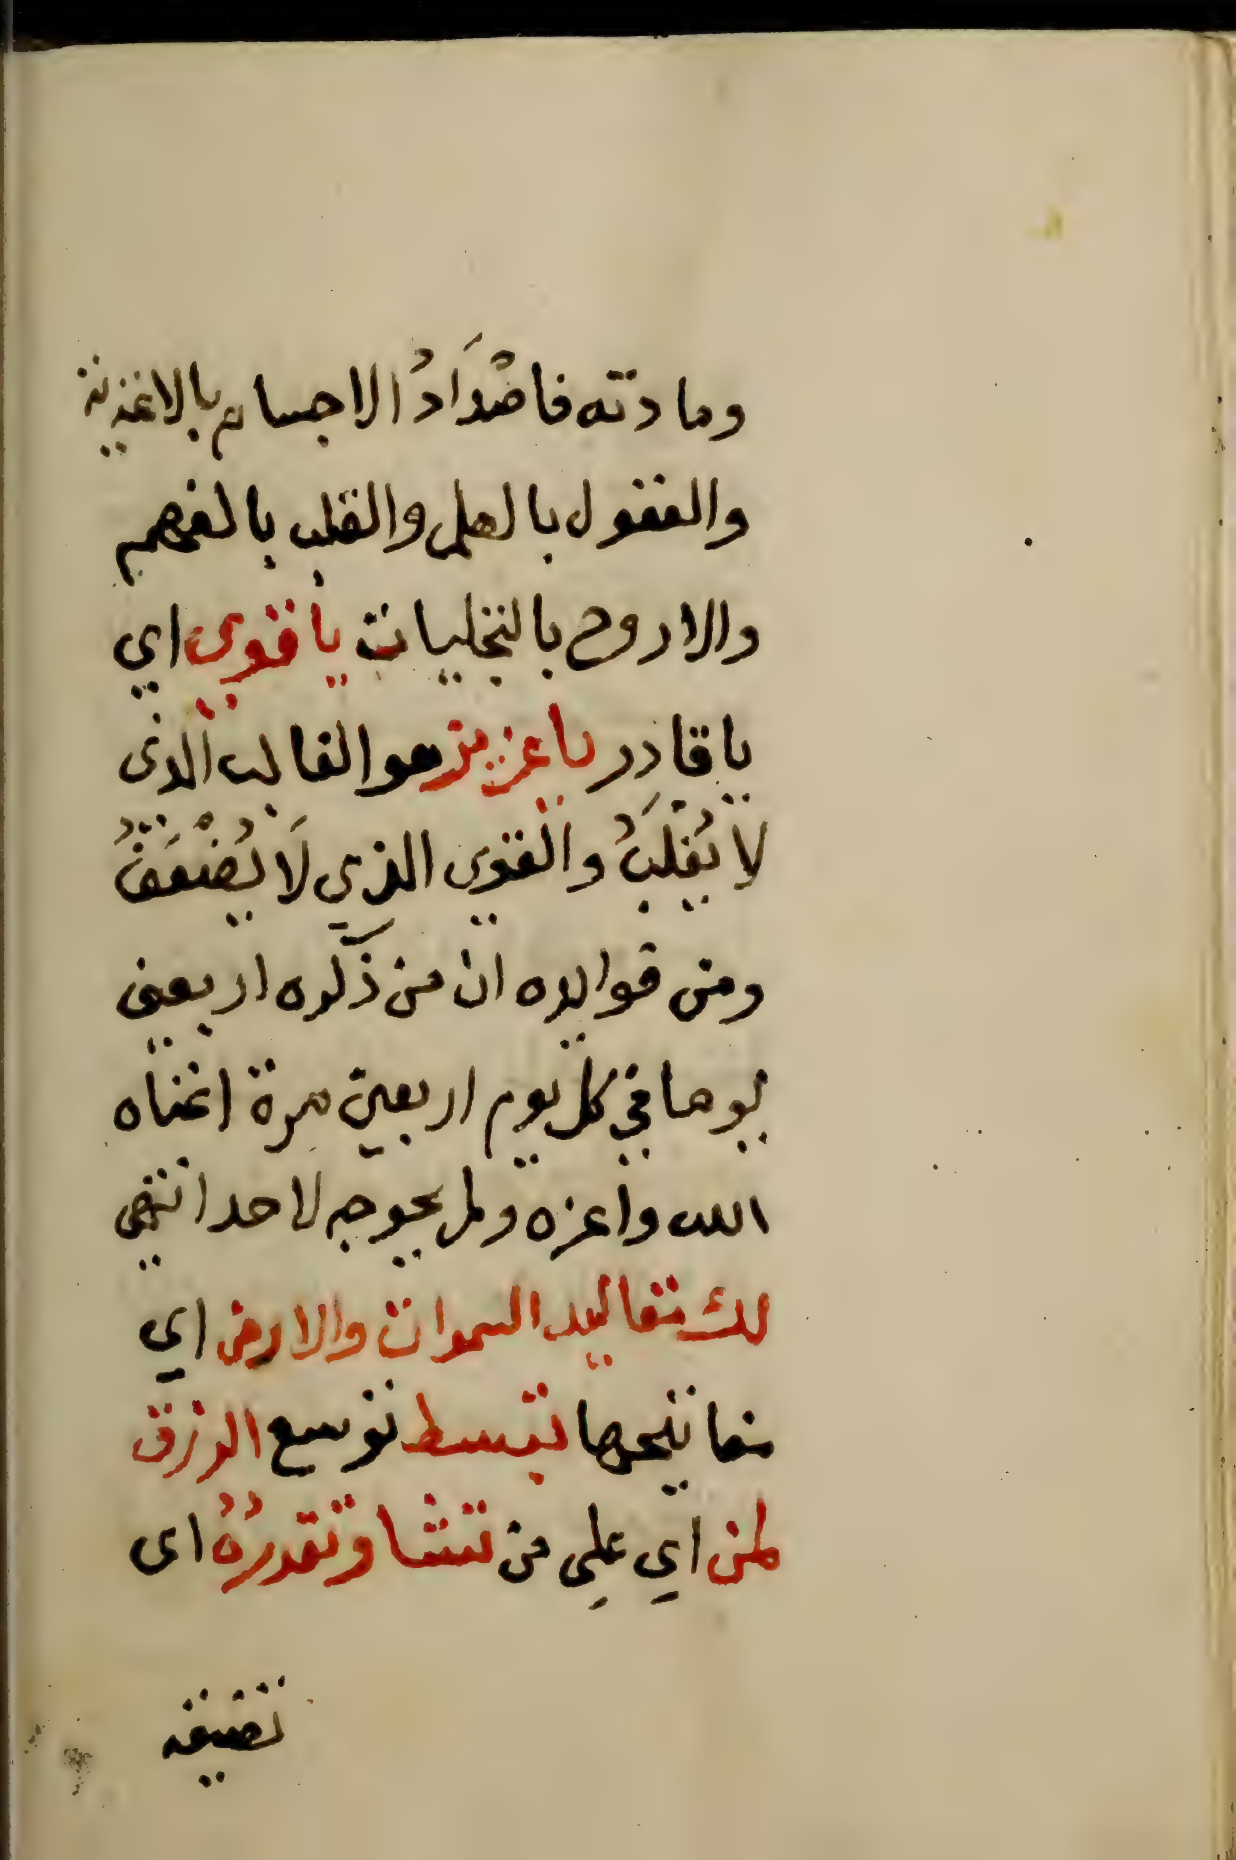 ومادته فاضْدَادُ الاجسام بالاغذية
والعقول بالعلم والقلب بالفهم
والاروح بالتجليات يا قوي اي
يا قادر يا عزيز هو الغالب الذى
لا يُغْلَبُ والقوى الذي لَا يُضْعَفُ
ومن فوايده ان من ذكره اربعين
يوما في كل يوم اربعين مرة اغناه
الله واعزه ولم يحوجه لاحد انتهى
لك مقاليد السموات والارض اي
مفاتيحها تبسط توسع الرزق
لمن اي على من تشا وتقدرُهُ اى
تضيقه